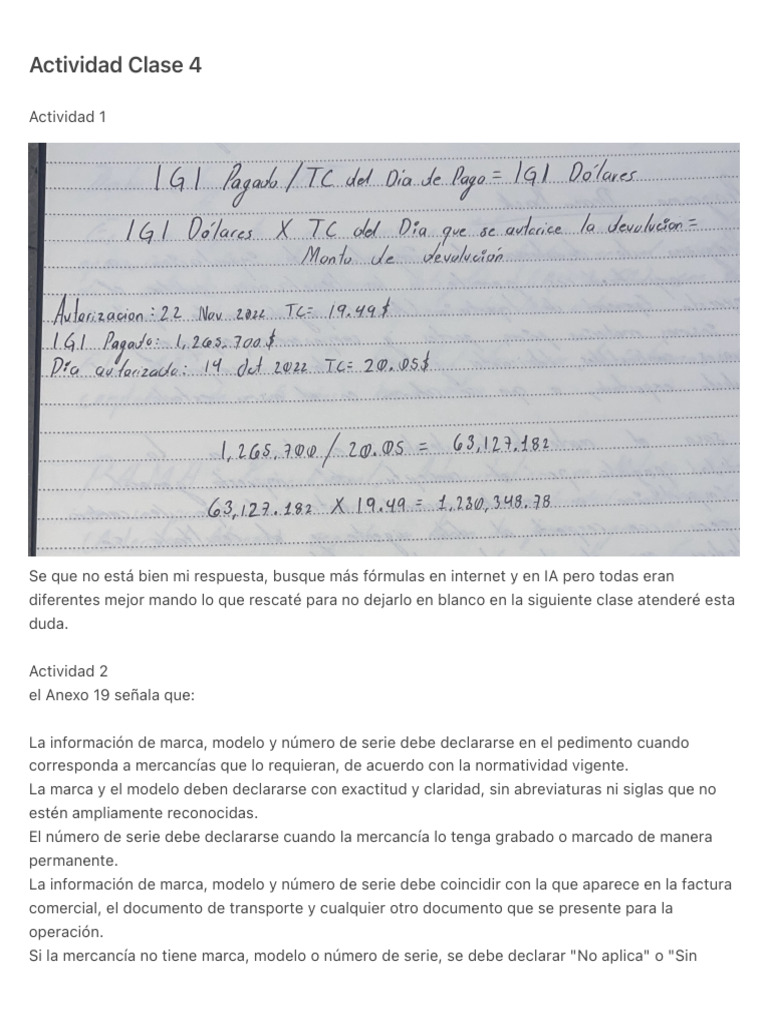 Actividad Clase 4
Actividad 1
IGI Pagado / TC del Día de Pago = IGI Dólares
IGI Dólares X TC del Día que se autorice la devolución =
Monto de devolución
Autorizacion: 22 Nov 2022 TC= 19.49$
IGI Pagado: 1,265,700$
Día autorizado: 14 Oct 2022 TC= 20.05$
1,265,700 / 20.05 = 63,127.182
63,127.182 X 19.49 = 1,230,348.78
Se que no está bien mi respuesta, busque más fórmulas en internet y en IA pero todas eran
diferentes mejor mando lo que rescaté para no dejarlo en blanco en la siguiente clase atenderé esta
duda.
Actividad 2
el Anexo 19 señala que:
La información de marca, modelo y número de serie debe declararse en el pedimento cuando
corresponda a mercancías que lo requieran, de acuerdo con la normatividad vigente.
La marca y el modelo deben declararse con exactitud y claridad, sin abreviaturas ni siglas que no
estén ampliamente reconocidas.
El número de serie debe declararse cuando la mercancía lo tenga grabado o marcado de manera
permanente.
La información de marca, modelo y número de serie debe coincidir con la que aparece en la factura
comercial, el documento de transporte y cualquier otro documento que se presente para la
operación.
Si la mercancía no tiene marca, modelo o número de serie, se debe declarar "No aplica" o "Sin